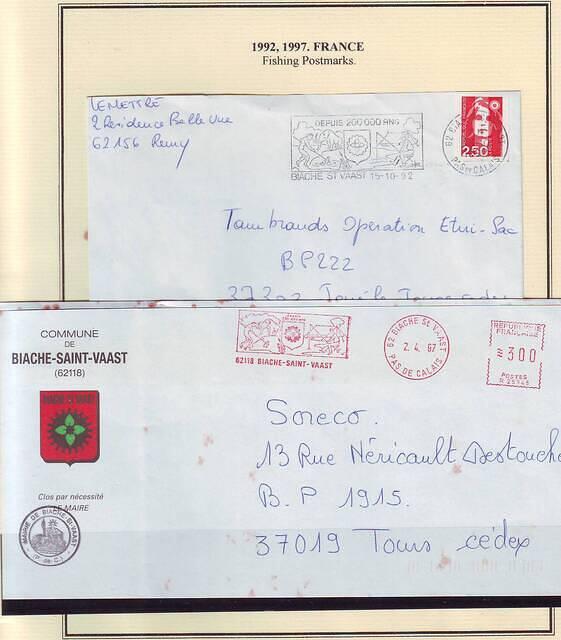 1992, 1997. FRANCE
Fishing Postmarks.
LEMETTRE
2 Residence Belle Vue
62156 Remy
DEPUIS 200 000 ANS
BIACHE ST VAAST 15-10-92
2,50
PAS DE CALAIS
Tambrands Operation Etui-Sac
BP222
COMMUNE
DE
BIACHE-SAINT-VAAST
(62118)
BIACHE ST VAAST
Clos par nécessité
LE MAIRE
MAIRIE DE BIACHE-ST-VAAST
(P.-de-C.)
62118 BIACHE-SAINT-VAAST
62 BIACHE ST VAAST
2. 4. 97
PAS DE CALAIS
REPUBLIQUE
FRANÇAISE
300
POSTES
Soreco.
13 Rue Néricault Destouche
B.P 1915.
37019 Tours cédex